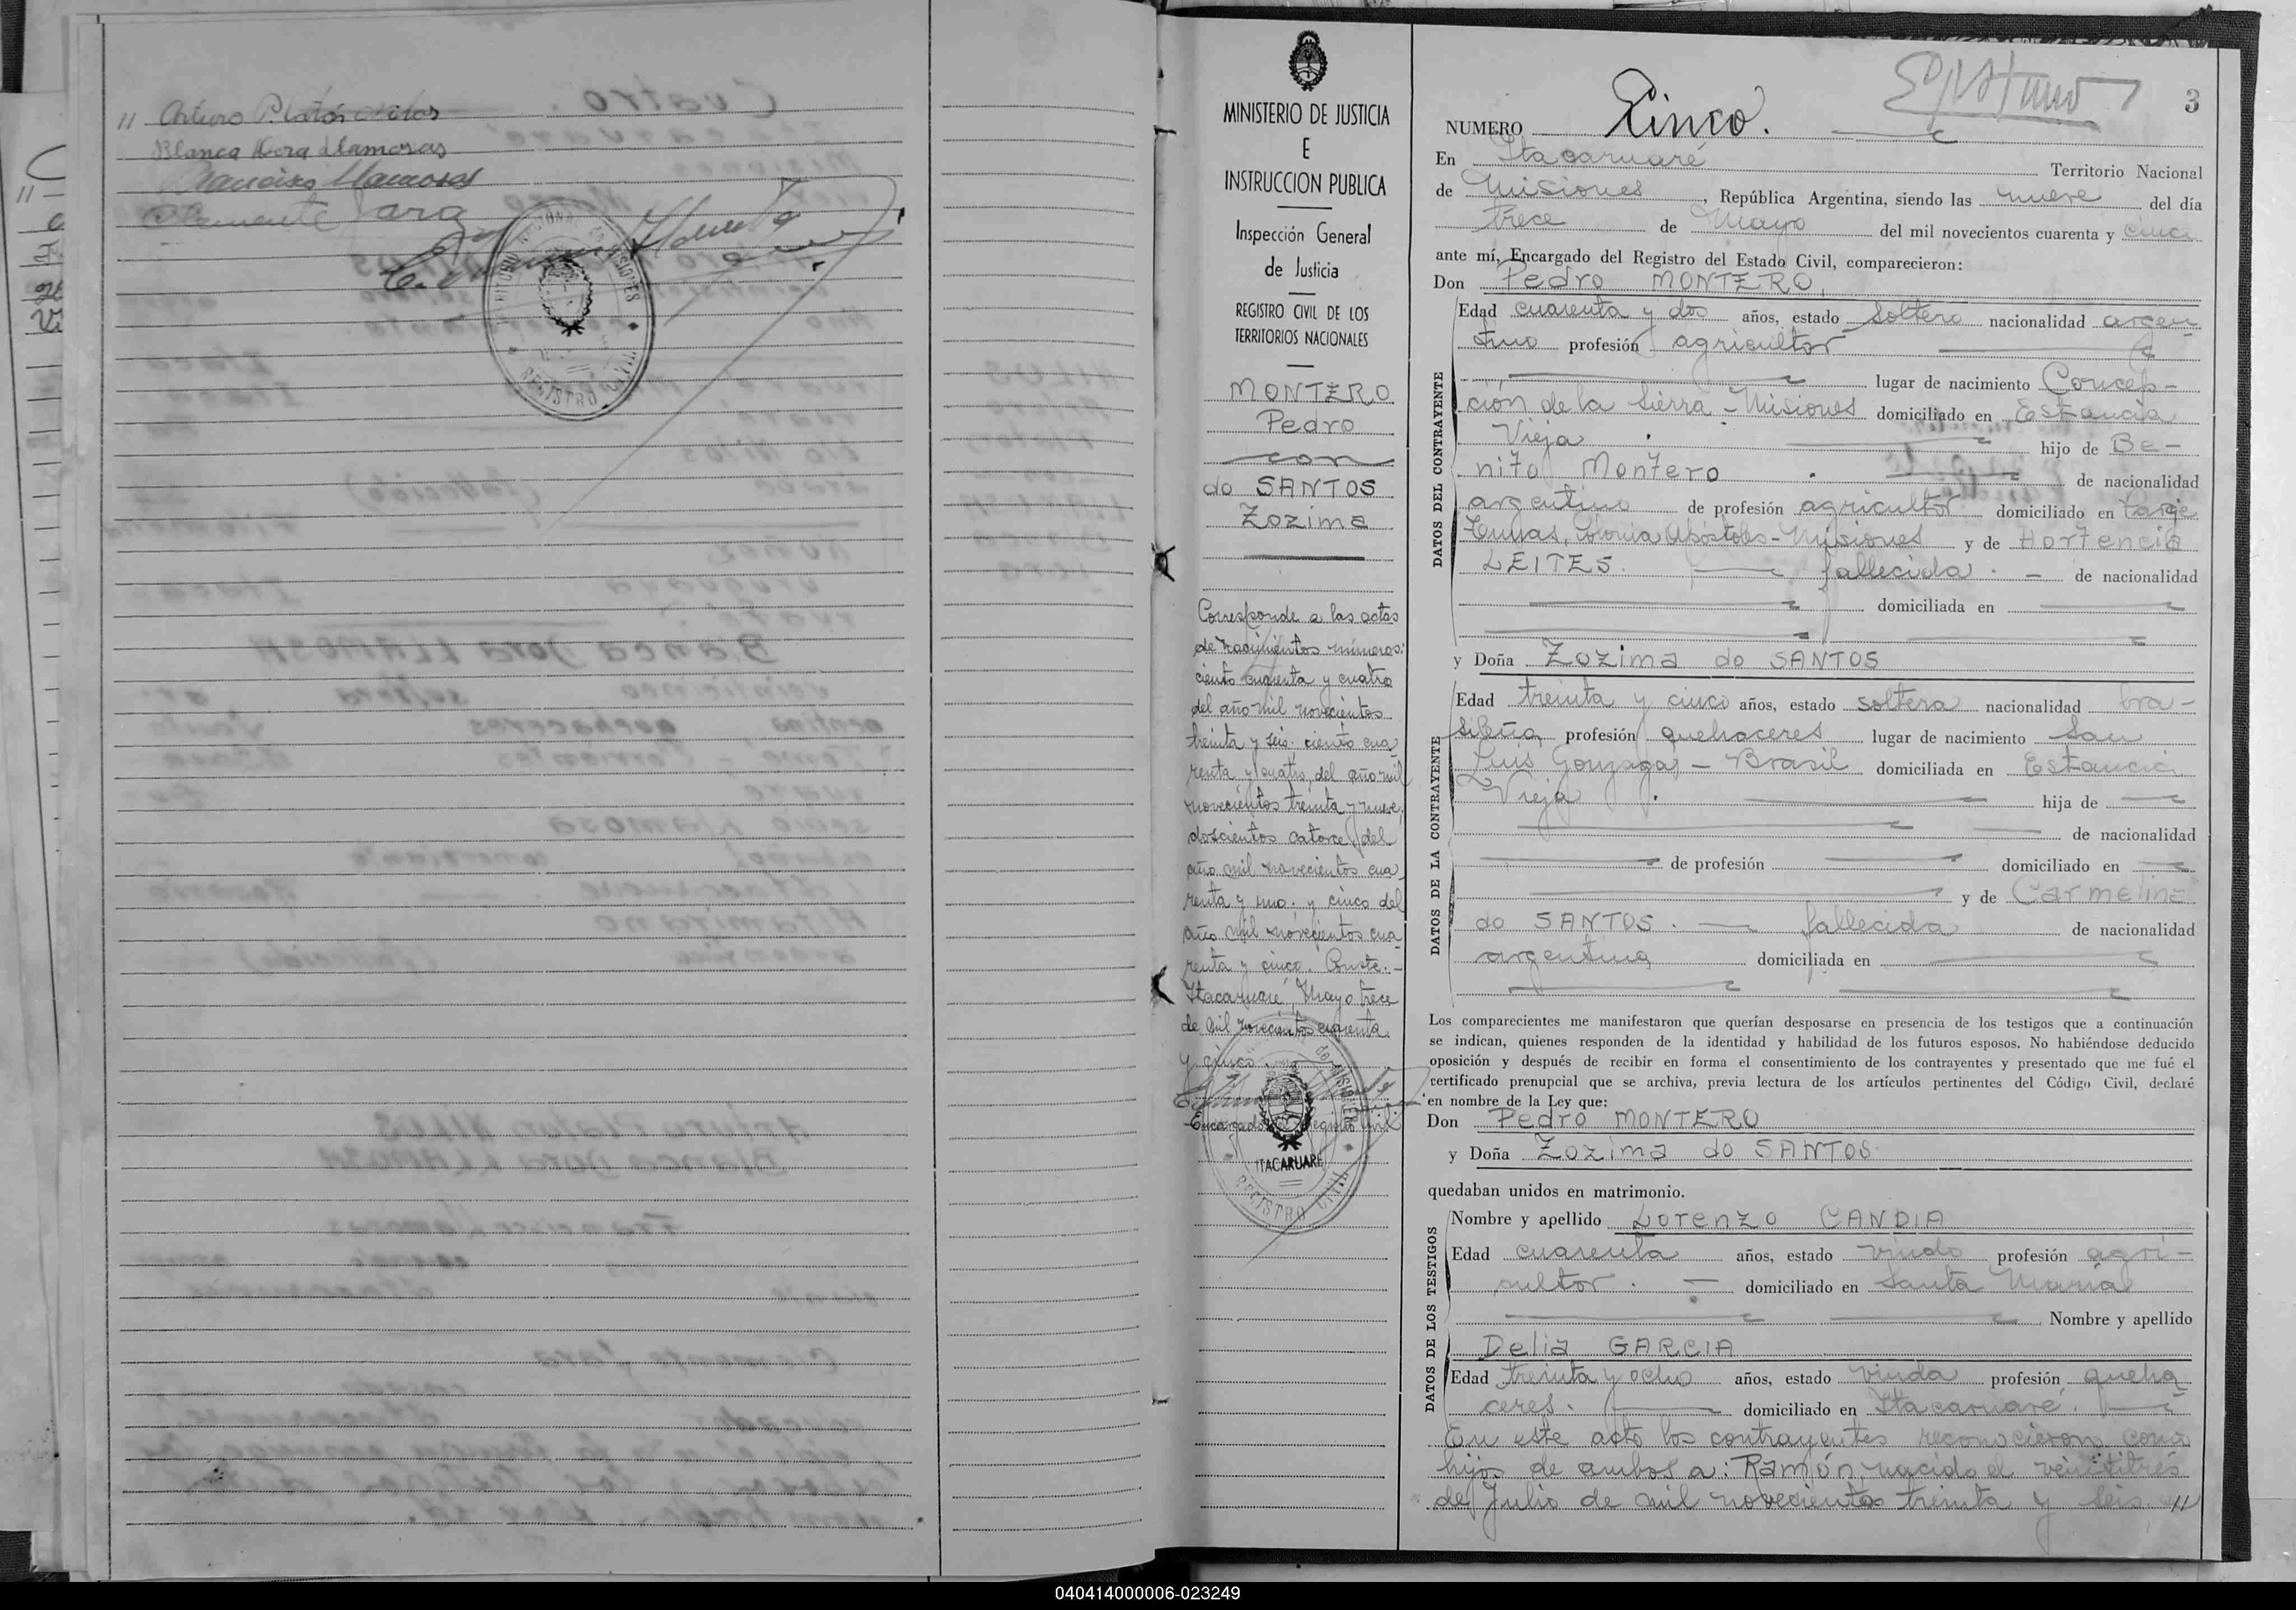 " Arturo Platón Milos
Blanca Dora Llamosas
Francisco Llamosas
Clemente Jara
REGISTRO CIVIL
MINISTERIO DE JUSTICIA
E
INSTRUCCION PUBLICA
Inspección General
de Justicia
REGISTRO CIVIL DE LOS
TERRITORIOS NACIONALES
MONTERO
Pedro
con
do SANTOS
Zozima
Corresponde a las actas
de nacimientos números:
ciento cuarenta y cuatro
del año mil novecientos
treinta y seis. ciento cua
renta y cuatro, del año mil
novecientos treinta y nueve,
doscientos catorce, del
año mil novecientos cua
renta y uno. y cinco del
año mil novecientos cua
renta y cinco. Conste.-
Itacaruaré, Mayo trece
de mil novecientos cuarenta
y cinco.
Encargado del Registro Civil
ITACARUARE
REGISTRO CIVIL
3
NUMERO Cinco.
En Itacaruaré Territorio Nacional
de Misiones, República Argentina, siendo las nueve del día
trece de Mayo del mil novecientos cuarenta y cinco
ante mí, Encargado del Registro del Estado Civil, comparecieron:
Don Pedro MONTERO,
DATOS DEL CONTRAYENTE
Edad cuarenta y dos años, estado soltero nacionalidad argen
tino profesión agricultor
lugar de nacimiento Concep-
ción de la Sierra - Misiones domiciliado en Estancia
Vieja. hijo de Be-
nito Montero. de nacionalidad
argentino de profesión agricultor domiciliado en Paraje
Tunas, Colonia Apóstoles - Misiones y de Hortencia
LEITES. fallecida. - de nacionalidad
domiciliada en
y Doña Zozima do SANTOS
DATOS DE LA CONTRAYENTE
Edad treinta y cinco años, estado soltera nacionalidad bra-
sileña, profesión quehaceres lugar de nacimiento San
Luis Gonzagas - Brasil domiciliada en Estancia
Vieja. hija de
de nacionalidad
de profesión domiciliado en
y de Carmelina
do SANTOS. fallecida de nacionalidad
argentina domiciliada en
Los comparecientes me manifestaron que querían desposarse en presencia de los testigos que a continuación
se indican, quienes responden de la identidad y habilidad de los futuros esposos. No habiéndose deducido
oposición y después de recibir en forma el consentimiento de los contrayentes y presentado que me fué el
certificado prenupcial que se archiva, previa lectura de los artículos pertinentes del Código Civil, declaré
en nombre de la Ley que:
Don Pedro MONTERO
y Doña Zozima do SANTOS.
quedaban unidos en matrimonio.
DATOS DE LOS TESTIGOS
Nombre y apellido Lorenzo CANDIA
Edad cuarenta años, estado viudo profesión agri-
cultor. domiciliado en Santa María
Nombre y apellido
Delia GARCIA
Edad treinta y ocho años, estado viuda profesión queha
ceres. domiciliado en Itacaruaré.
En este acto los contrayentes reconocieron como
hijos de ambos a: Ramón, nacido el veintitres
de Julio de mil novecientos treinta y seis. "
040414000006-023249